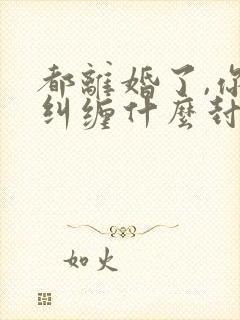 都離婚了,你
纠缠什麼封
如火